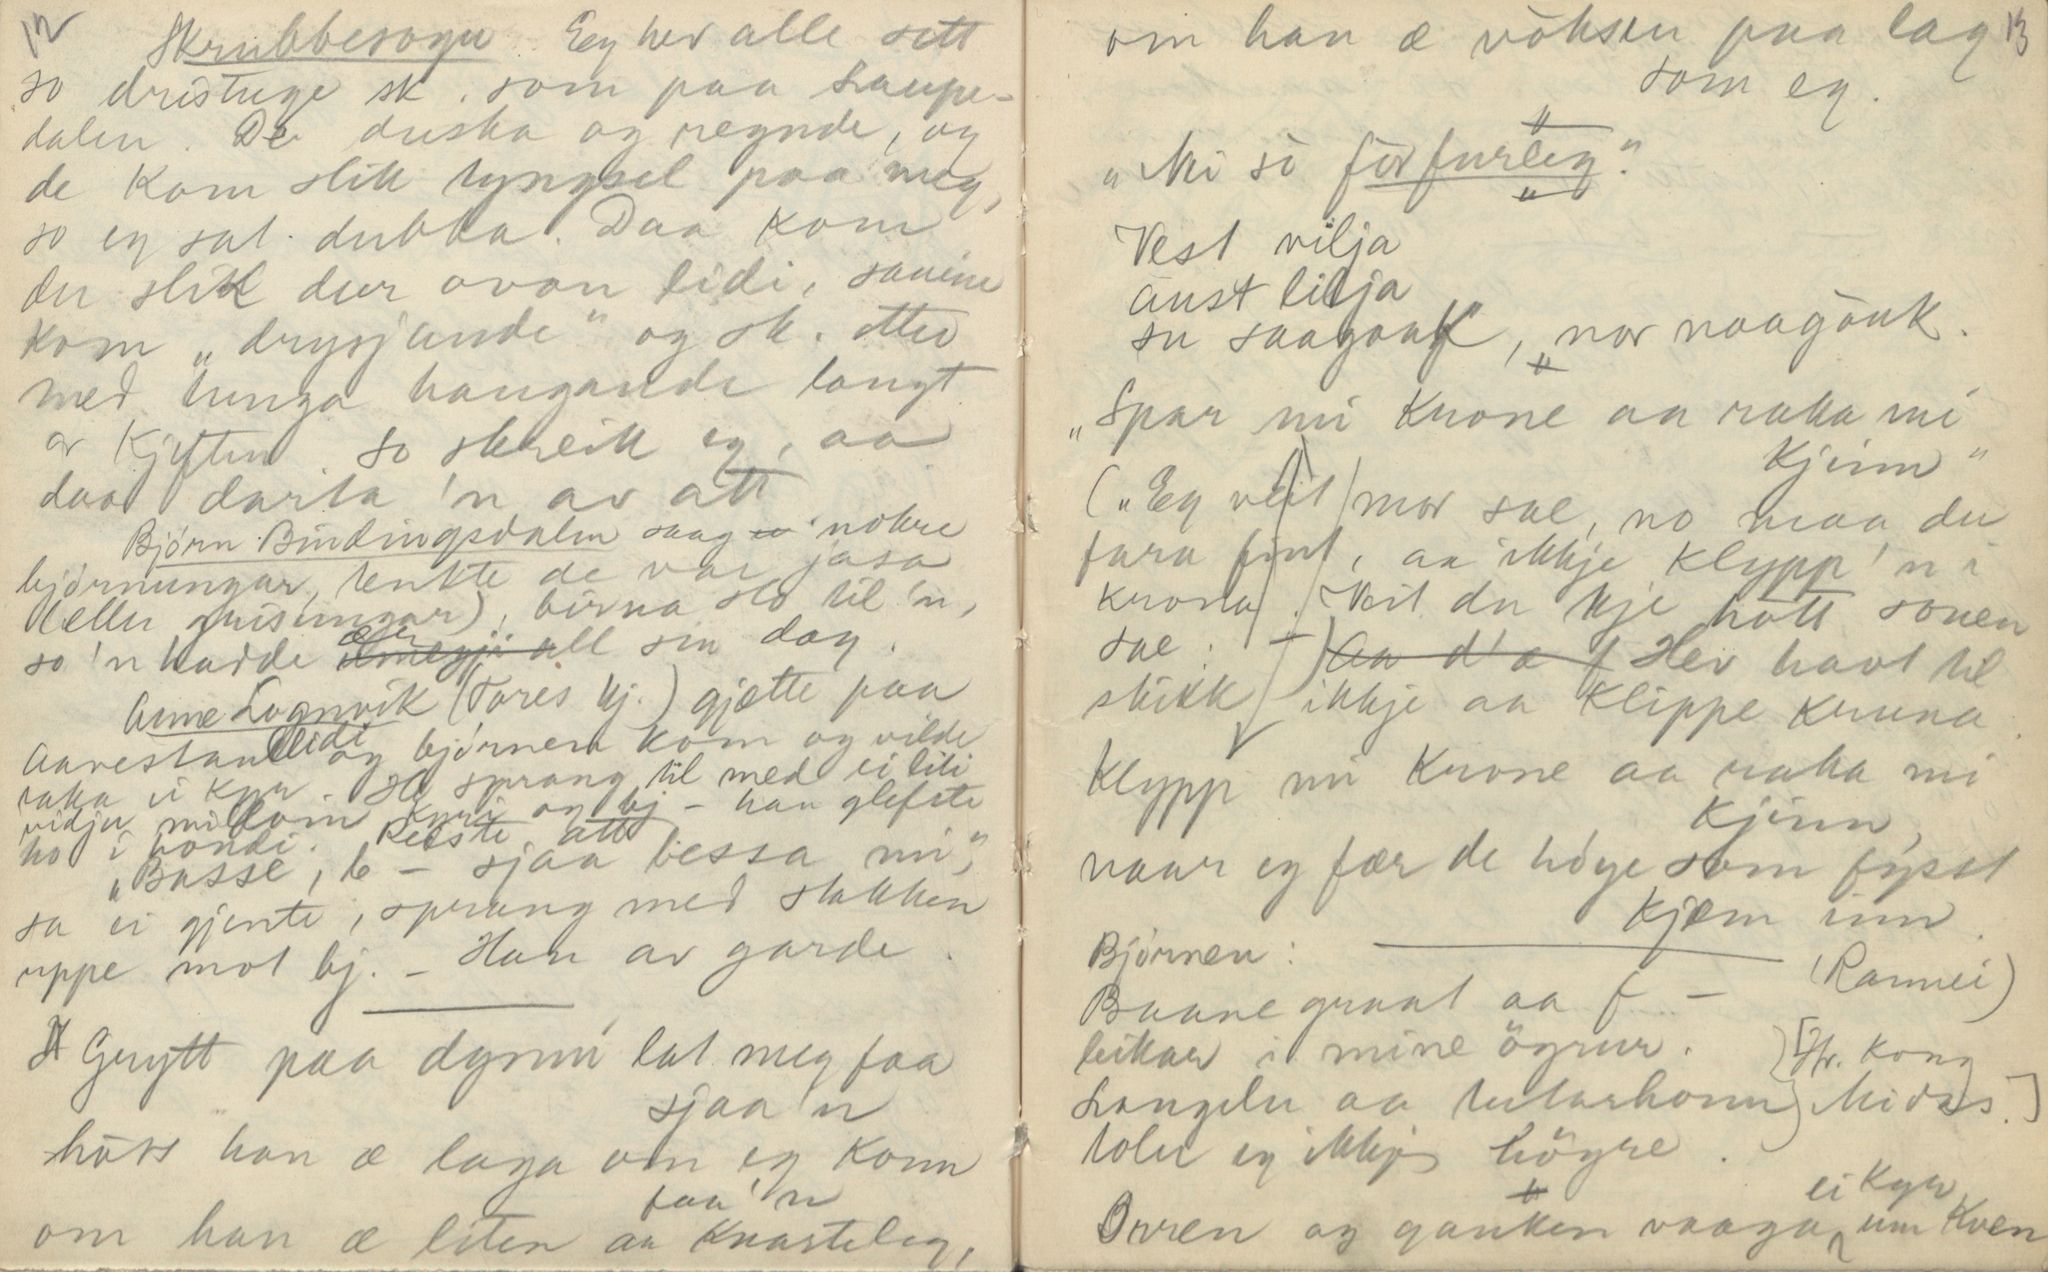 12
Skrubbesogu Eg hev alle sett
so dristuge sk. som paa Laupe-
dalen. De duska og regnde, og
de kom slik tyngsel paa meg,
so eg sat dubba. Daa kom
du slik dur ovan lidi, sauine
kom „drysjande" og sk. etter
med tunga hangande langt
or kjeften. So skreik eg, aa
daa darta 'n av att
Bjørn Bindingsdalen saag nokre
bjørnungar, tenkte de var jasa
(eller grisungar), birna slo til 'n,
so 'n hadde ær all sin dag.
Anne Lognvik (Tores kj.) gjætte paa
Aarestaulidi og bjørnen kom og vilde
taka ei kyr. Ho sprang til med ei liti
vidju millom kyri og bj – han glefste
ho i hondi. Reiste att
„Basse, b – sjaa bessa mi,"
sa ei gjente, sprang med stakken
uppe mot bj. – Han av garde.
Grytt paa dynni lat meg faa
sjaa 'n
høss han æ laga om eg konn
faa 'n
om han æ liten aa knasteleg,
13
om han æ vòksen paa lag
som eg.
„Mi sò fòrfurleg."
Vest vilja
aust lilja
su saagauk, nor naagauk.
„Spar mi krone aa raka mi
kjinn"
(„Eg veit mor sae, no maa du
fara fint, aa ikkje klypp 'n i
krona. Veit du kje hòtt sonen
sae: –) Aa d'æ f Hev havt til
skikk ikkje aa klippe kruna
Klypp mi krone aa raka mi
kjinn,
naar eg fær de høye som fysst
kjæm inn.
Bjørnen:
(Rannei)
Baane graat aa f –
leikar i mine öyrur.
Langelu aa lutarhonn
toler eg ikkje högre.
[Jfr. Kong
Midas.]
Orren og gauken vaaga ei kyr, um kven